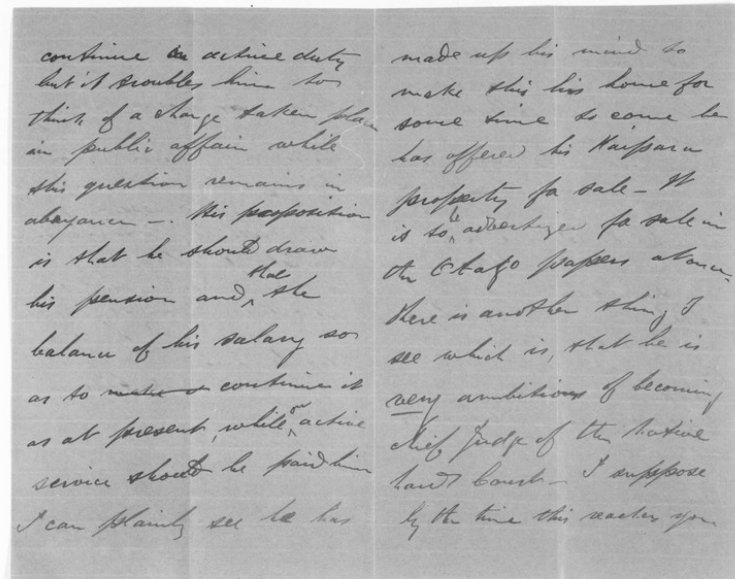 continue on active duty
but it troubles him to
think of a change taken place
in public affair while
this question remains in
abeyance —. His proposition
is that he should draw
his pension and that the
balance of his salary so
as to make a continue it
as at present, while on active
service should be paid him
I can plainly see he has
made up his mind to
make this his home for
some time to come he
has offered his Kaipara
property for sale — It
is to be advertized for sale in
the Otago papers at once.
there is another thing I
see which is, that he is
very ambitious of becoming
chief Judge of the Native
Land Court — I suppose
by the time this reaches you